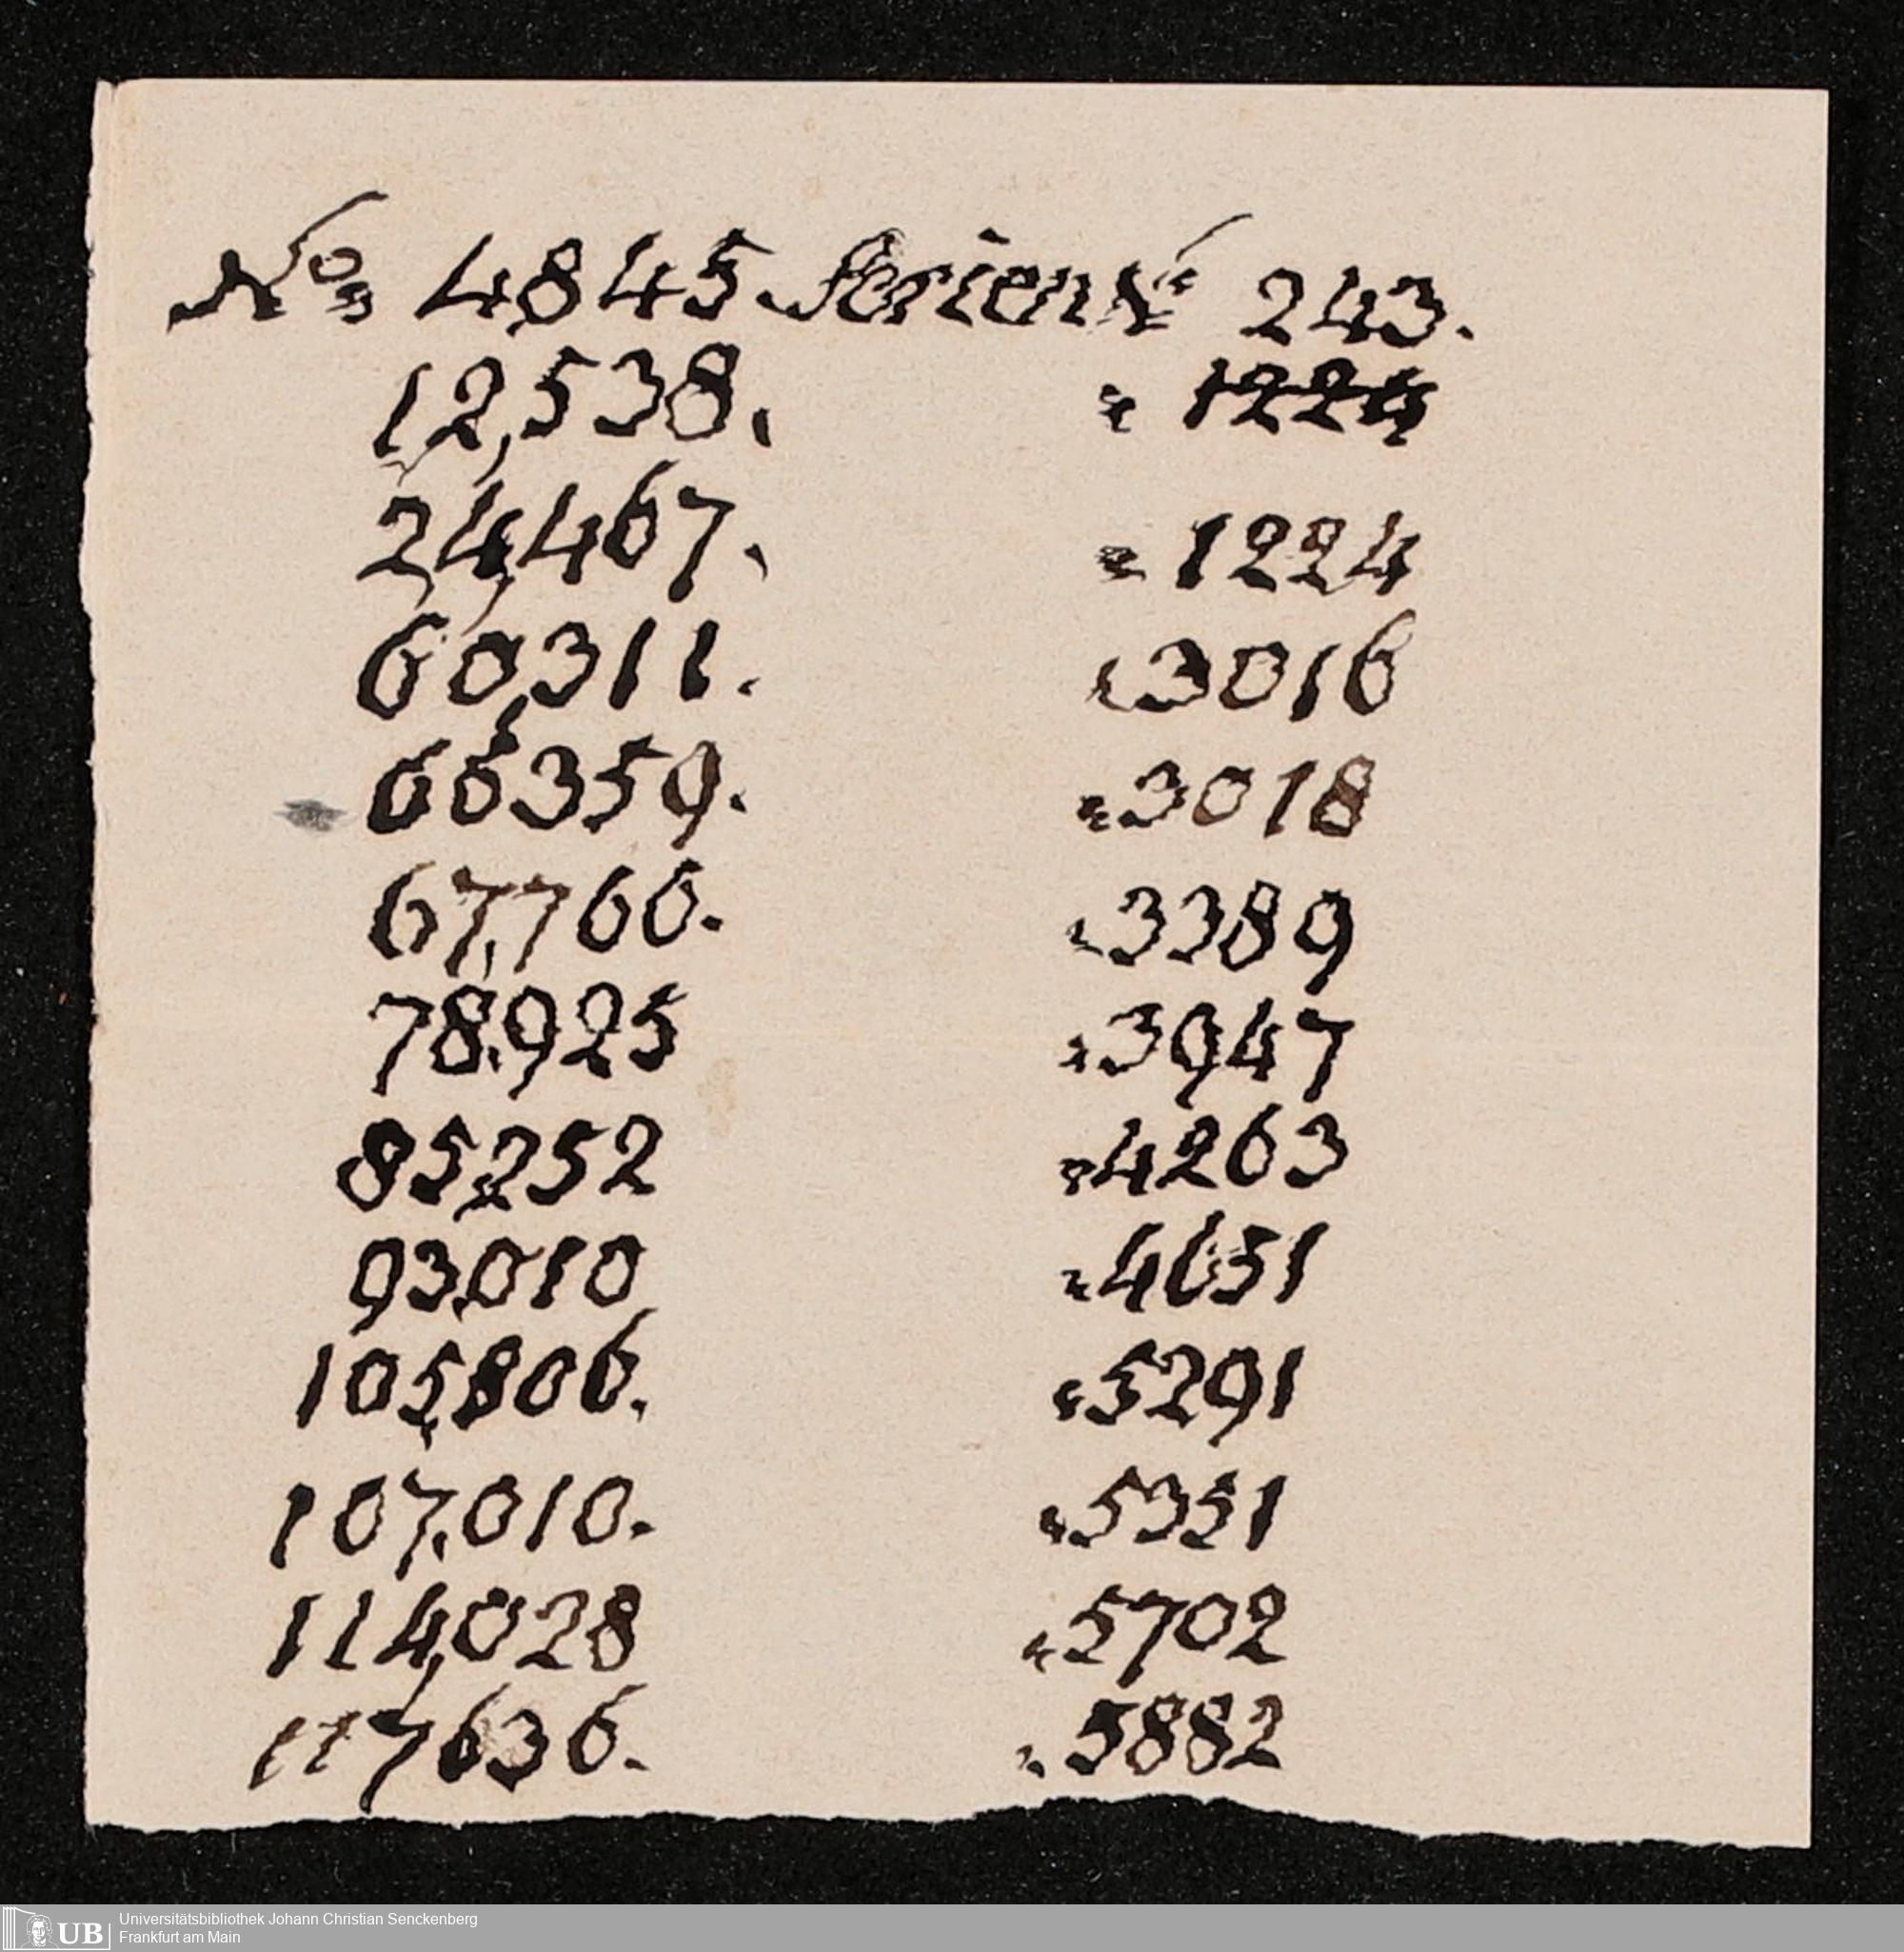 No 4845. Serien No 243.
12,538. "
24,467. " 1224
60,311. " 3016
60359. " 3018
67,766. " 3389
78.925 " 3947
85,252 " 4263
93,010 " 4651
105,806. " 5291
107,010. " 5351
114,028 " 5702
117,636. " 5882
UB Universitätsbibliothek Johann Christian Senckenberg
Frankfurt am Main